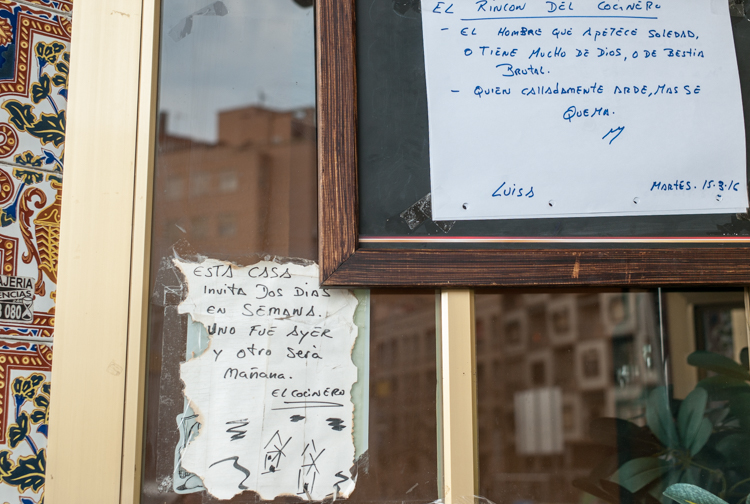 EL RINCON DEL COCINERO
- EL HOMBRE QUE APETECE SOLEDAD,
O TIENE MUCHO DE DIOS, O DE BESTIA
BRUTAL.
- QUIEN CALLADAMENTE ARDE, MAS SE
QUEMA.
LUISA
MARTES. 15.3.16
ESTA CASA
INVITA DOS DIAS
EN SEMANA.
UNO FUE AYER
Y OTRO SERÁ
MAÑANA.
EL COCINERO
AJERIA
ENCIAS
080